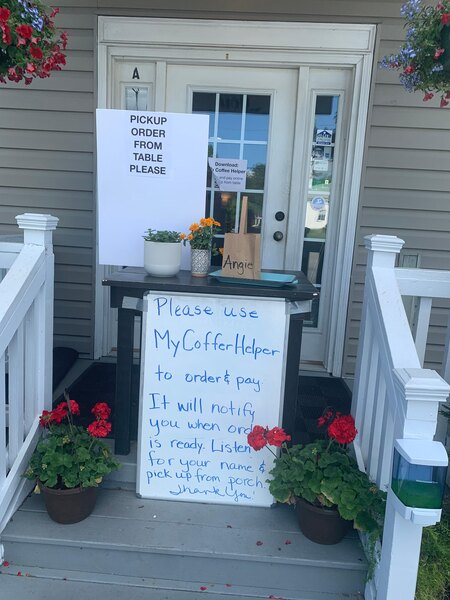 A
PICKUP
ORDER
FROM
TABLE
PLEASE
Download:
Coffee Helper
and pay online
Angie
Please use
MyCofferHelper
to order & pay
It will notify
you when
is ready. Listen
for your name &
pick up from porch.
Thank You!